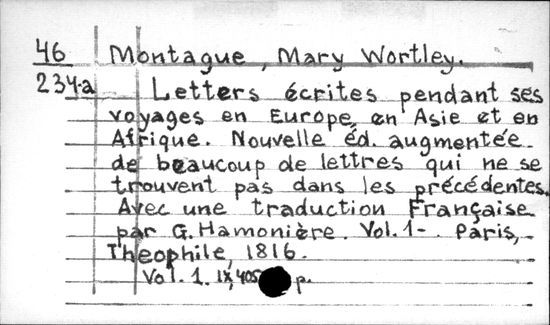 46 Montague, Mary Wortley.
234-a Letters écrites pendant ses
voyages en Europe, en Asie et en
Afrique. Nouvelle éd. augmentée
de beaucoup de lettres qui ne se
trouvent pas dans les précédentes.
Avec une traduction Française
par G. Hamonière. Vol. 1-. Paris,
Theophile, 1816.
Vol. 1. IX, 405 p.